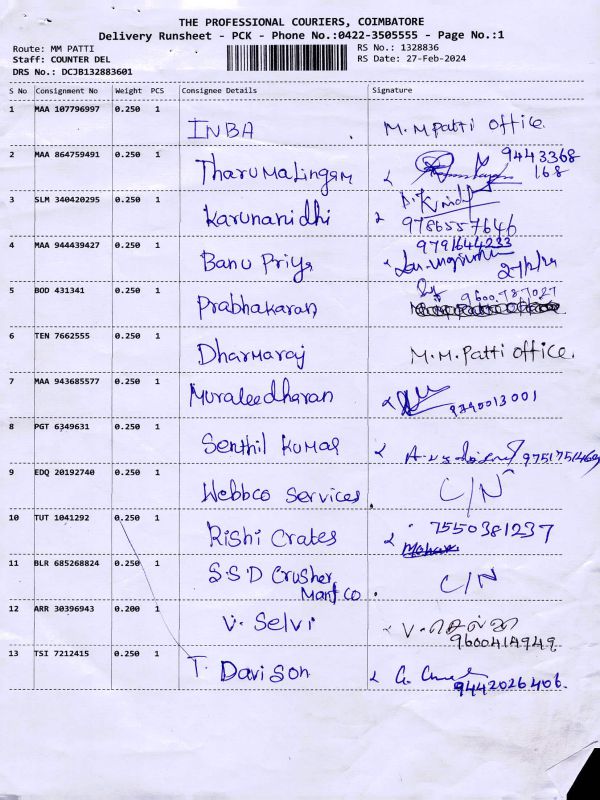 THE PROFESSIONAL COURIERS, COIMBATORE
Delivery Runsheet - PCK - Phone No.:0422-3505555 - Page No.:1
Route: MM PATTI RS No.: 1328836
Staff: COUNTER DEL RS Date: 27-Feb-2024
DRS No.: DCJB132883601
S No Consignment No Weight PCS Consignee Details Signature
1 MAA 107796997 0.250 1 INBA M.M Patti Office.
2 MAA 864759491 0.250 1 Tharumalingam 9443368
168
3 SLM 340420295 0.250 1 Karunanidhi
9786557646
4 MAA 944439427 0.250 1 Banu Priya 9791644233
27/2/24
5 BOD 431341 0.250 1 Prabhakaran 9600787027
6 TEN 7662555 0.250 1 Dharmaraj M.M. Patti office.
7 MAA 943685577 0.250 1 Muraleedharan
8 PGT 6349631 0.250 1 Senthil Kumar
9 EDQ 20192740 0.250 1 Webbco Services. C/N
10 TUT 1041292 0.250 1 Rishi Crates 7550381237
Mohan
11 BLR 685268824 0.250 1 S.S.D Crusher C/N
Manf co.
12 ARR 30396943 0.200 1 V. Selvi V. செல்வி
9600414949
13 TSI 7212415 0.250 1 T. Davison
9442026406.